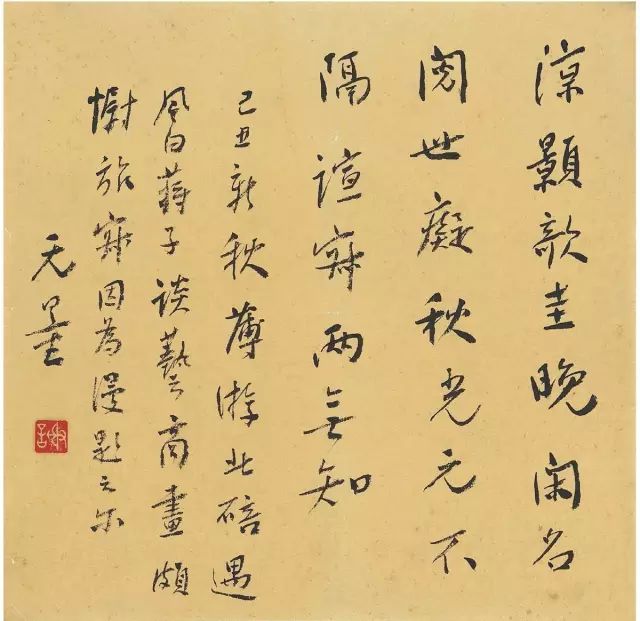 涼顥欹圭晚閑名
閱世癡秋光元不
隔諠寂兩無知
己丑新秋薄游北碚遇
風白蔣子談藝商畫頗
慰旅寂因為漫題之尔
无量